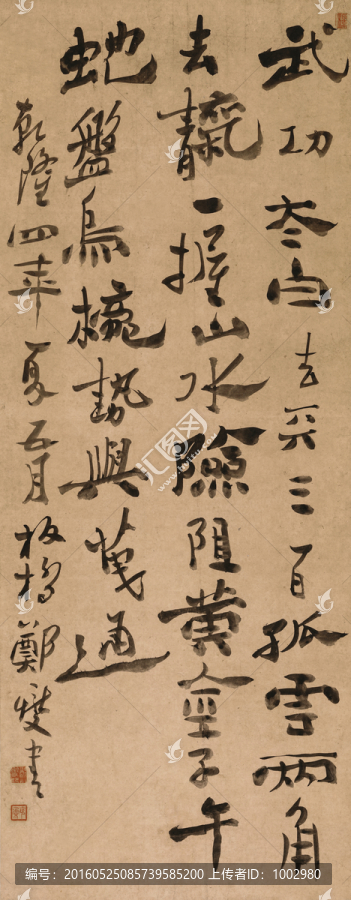 武功夳白去兲三百孤雲兩角
去靝一握山水險阻黃金子午
蛇盤烏櫳勢與通
乾隆四年夏五月板橋鄭燮書
汇图网
编号:20160525085739585200 上传者ID:1002980